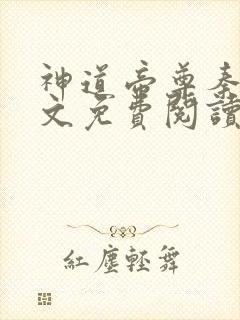 神道帝尊秦
文免費閱讀
紅塵輕舞